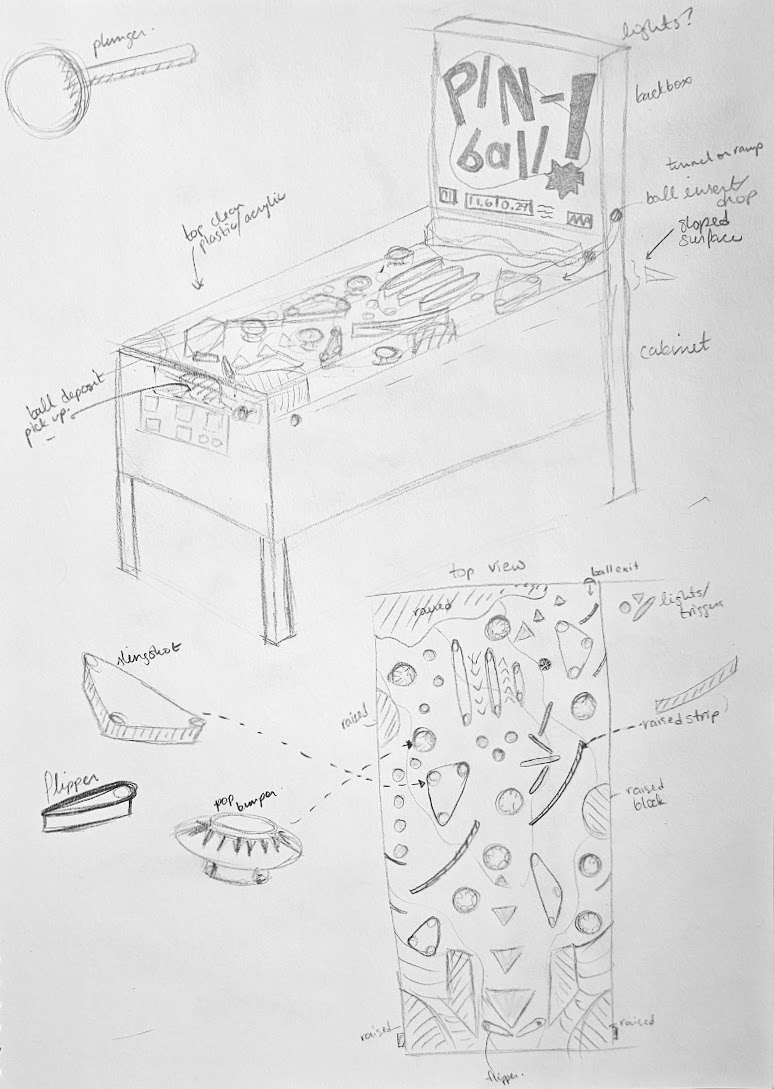 plunger.
lights?
PIN-
ball!
backbox
tunnel or ramp
ball insert/
drop
sloped
surface
top clear
plastic/acrylic
cabinet
ball deposit
pick up.
top view
ball exit
lights/
triggers
raised
slingshot
raised
raised strip
flipper
pop
bumper.
raised
block
raised
raised
flipper.